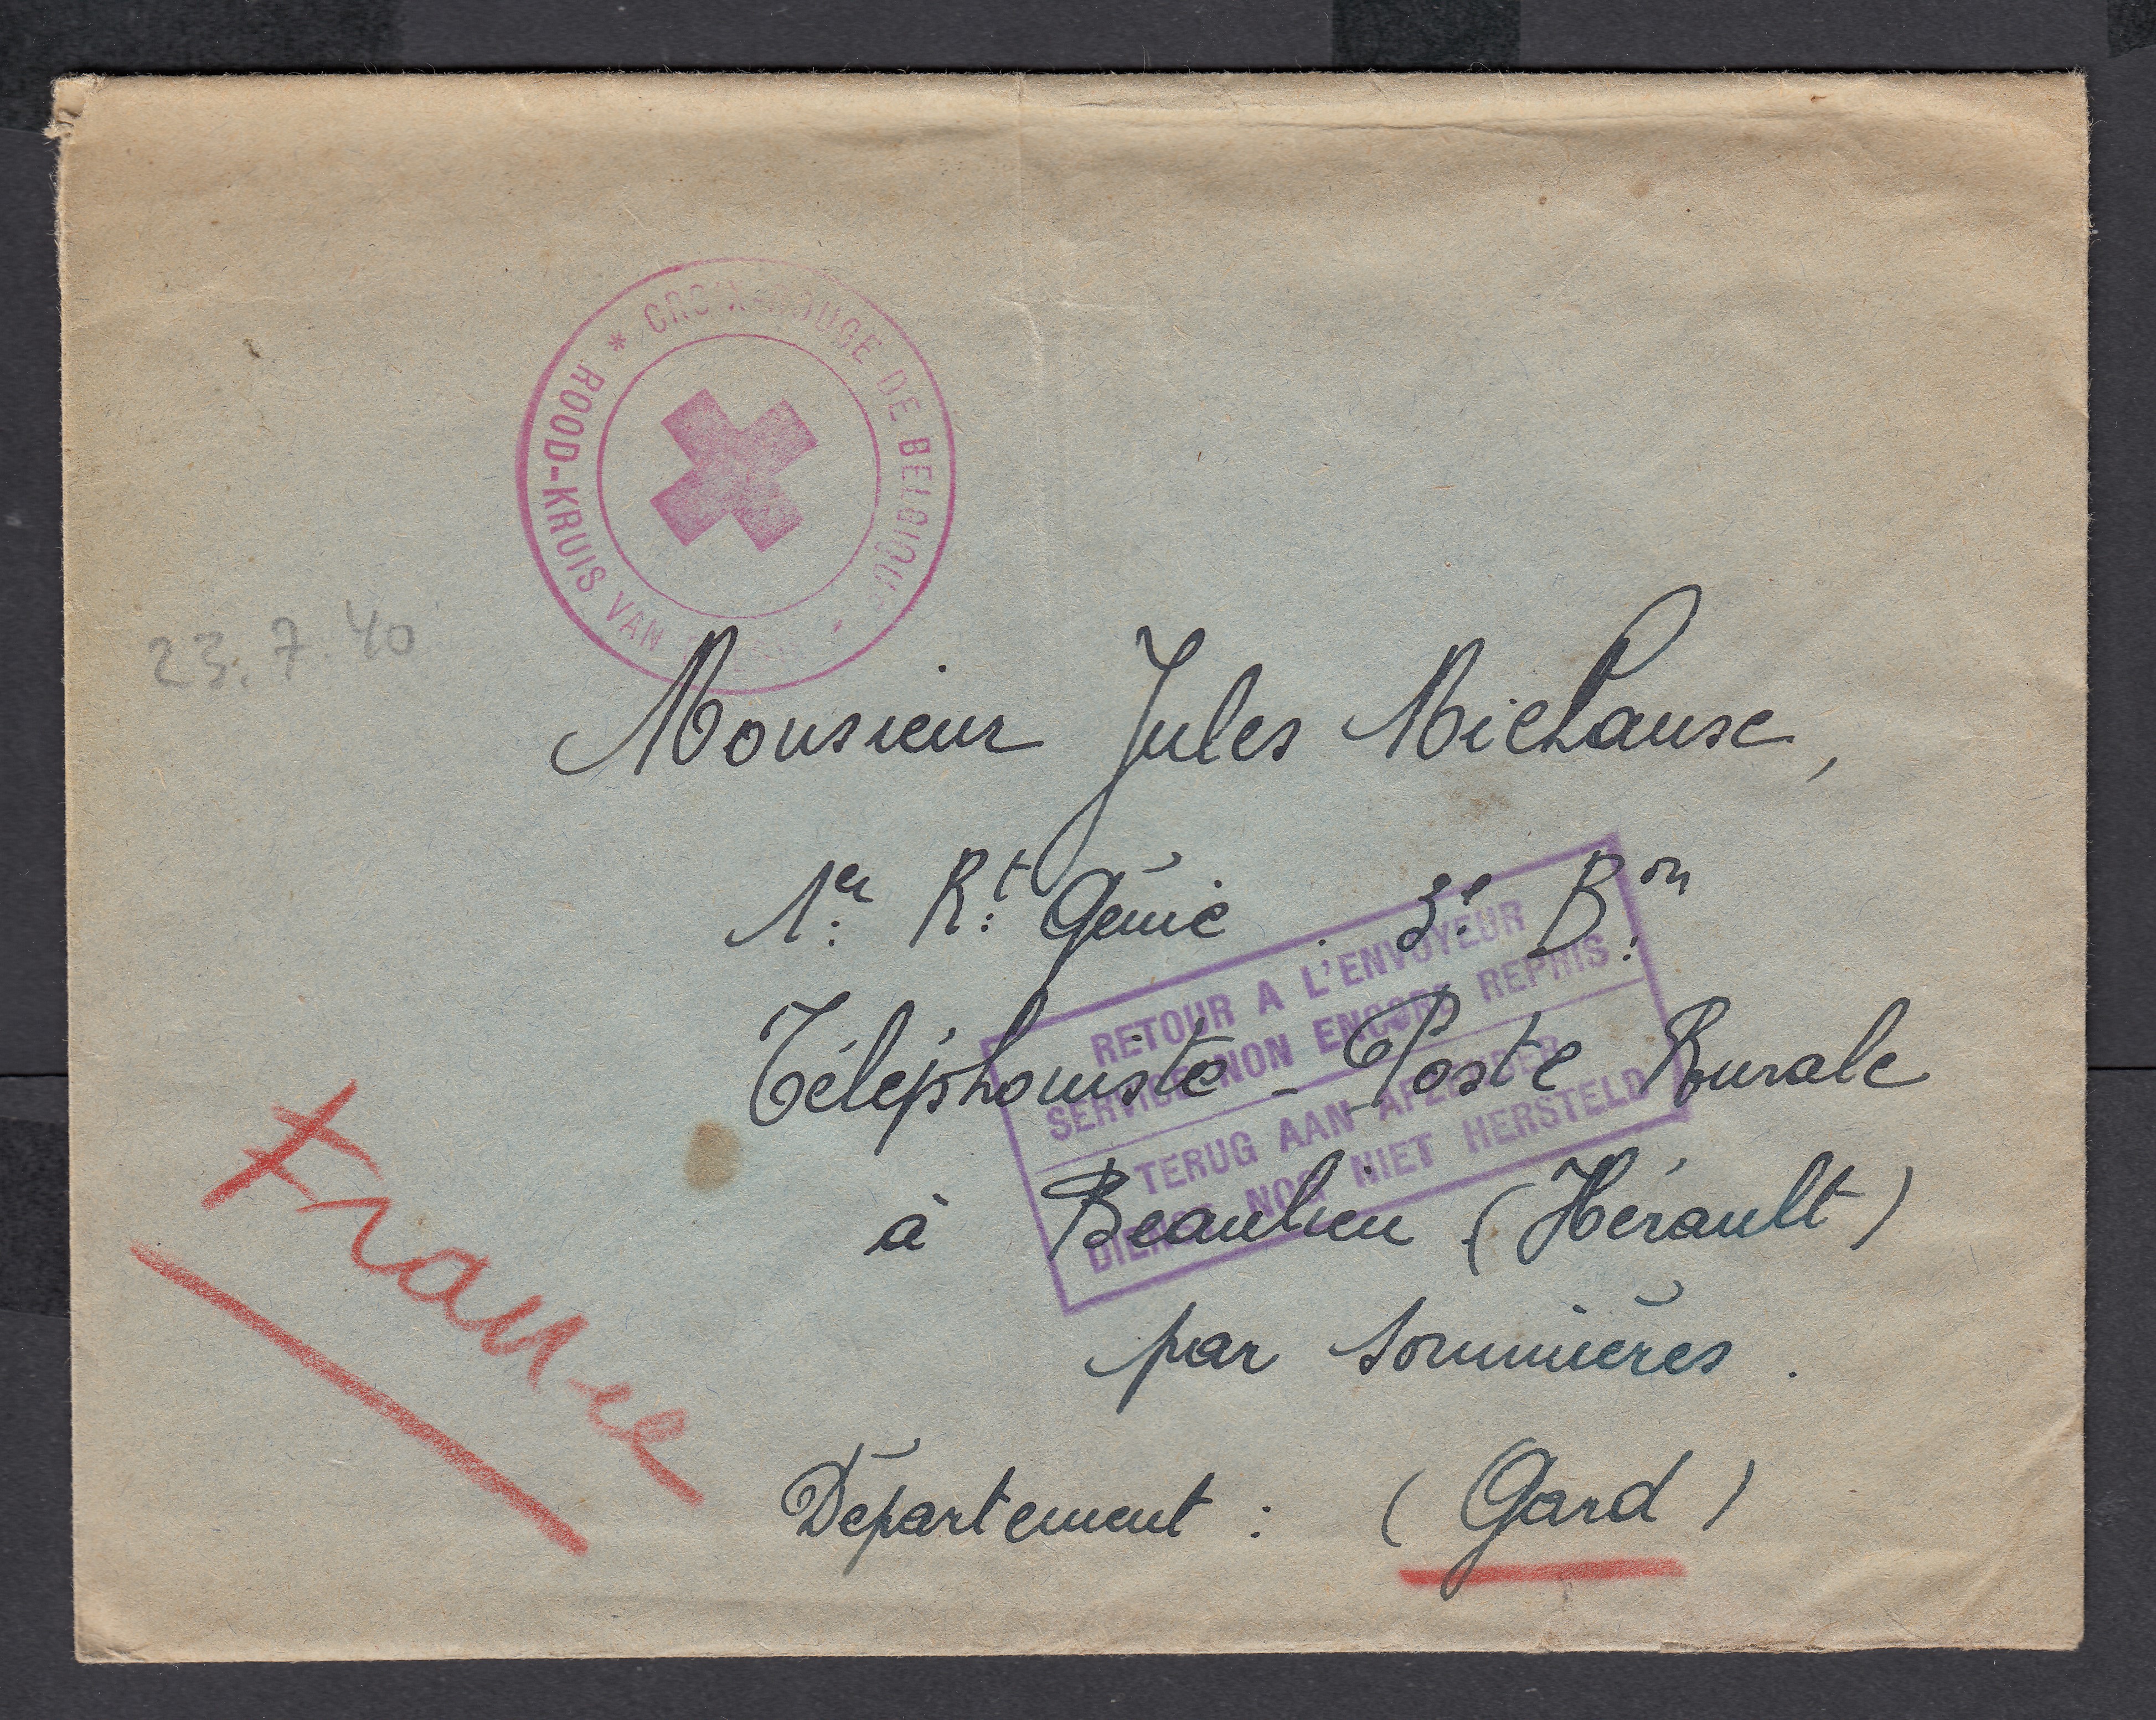 * CROIX-ROUGE DE BELGIQUE *
ROOD-KRUIS VAN
23.7.40
Monsieur Jules Michaux,
1er Rt Génie . 3e Bon
RETOUR A L'ENVOYEUR
SERVICE NON ENCORE REPRIS
Téléphoniste - Poste Rurale
TERUG AAN AFZENDER
DIENST NOG NIET HERSTELD
à Beaulieu (Hérault)
par Sommières .
Département : (Gard)
France